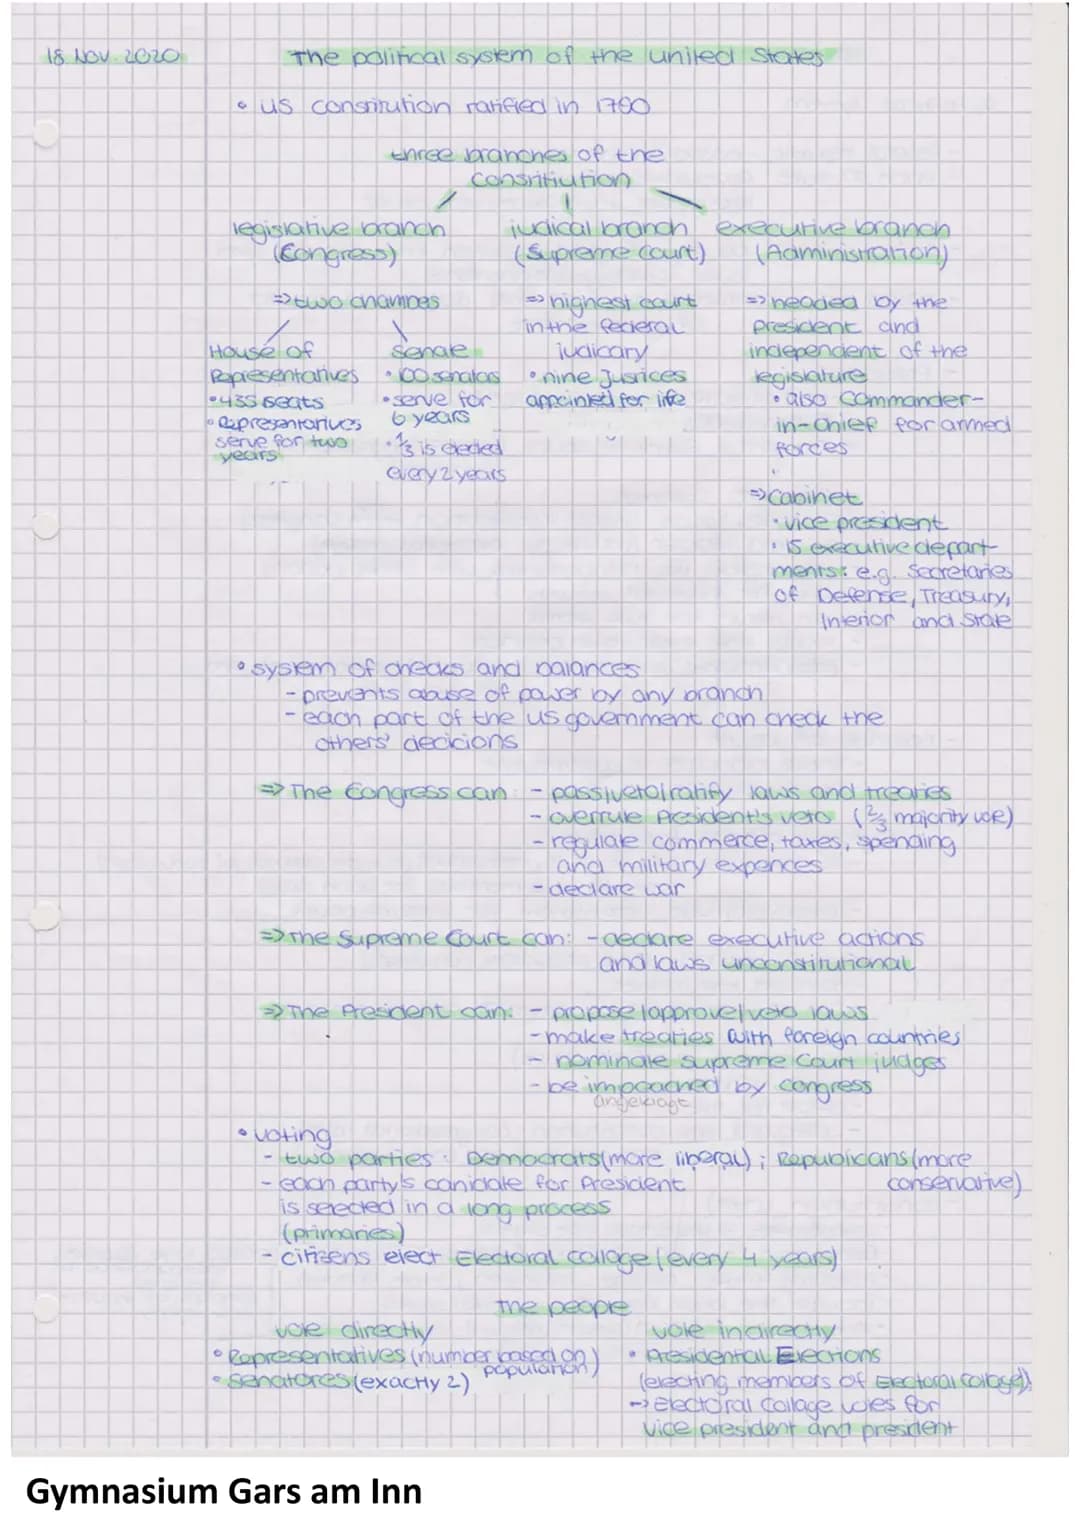 18 Nov. 2020
The political system of the United States
• US constitution ratified in 1780
three branches of the
Consritiution
legislative branch
(Congress)
judical branch
(Supreme Court)
executive branch
(Administration)
=> two chambes
House of
Representatives
• 435 seats
• Representatives
serve for two
years
Senate
• 100 senatas
• serve for
6 years
• 1/3 is elected
every 2 years
=> highest court
in the federal
judicary
• nine Justices
appointed for life
=> headed by the
president and
independent of the
legislature
• also commander-
in-chief for armed
forces
=> Cabinet
• vice president
• 15 executive depart-
ments: e.g. Secretaries
of Defense, Treasury,
Interior and State
• system of checks and balances
- prevents abuse of power by any branch
- each part of the US government can check the
others' decicions
=> The Congress can: - pass/veto/ratify laws and treaties
- overrule President's veto (2/3 majority vote)
- regulate commerce, taxes, spending
and military expences
- declare war
=> The Supreme Court can: - declare executive actions
and laws unconstitutional
=> The President can: - propose/approve/veto laws
- make treaties with foreign countries
- nominate supreme Court judges
- be impeached by congress
angeklagt
• voting
- two parties: Democrats (more liberal); Republicans (more
conservative)
- each party's canidate for President
is selected in a long process
(primaries)
- citizens elect Electoral Collage (every 4 years)
The people
vote directly
• Representatives (number based on
population)
• Senatores (exactly 2)
vote indirectly
• Presidential Elections
(electing members of Electoral Collage)
-> Electoral Collage votes for
vice president and president
Gymnasium Gars am Inn